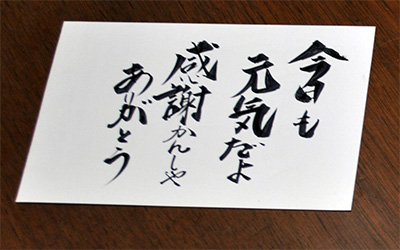 今日も
元気だよ
感謝かんしゃ
ありがとう